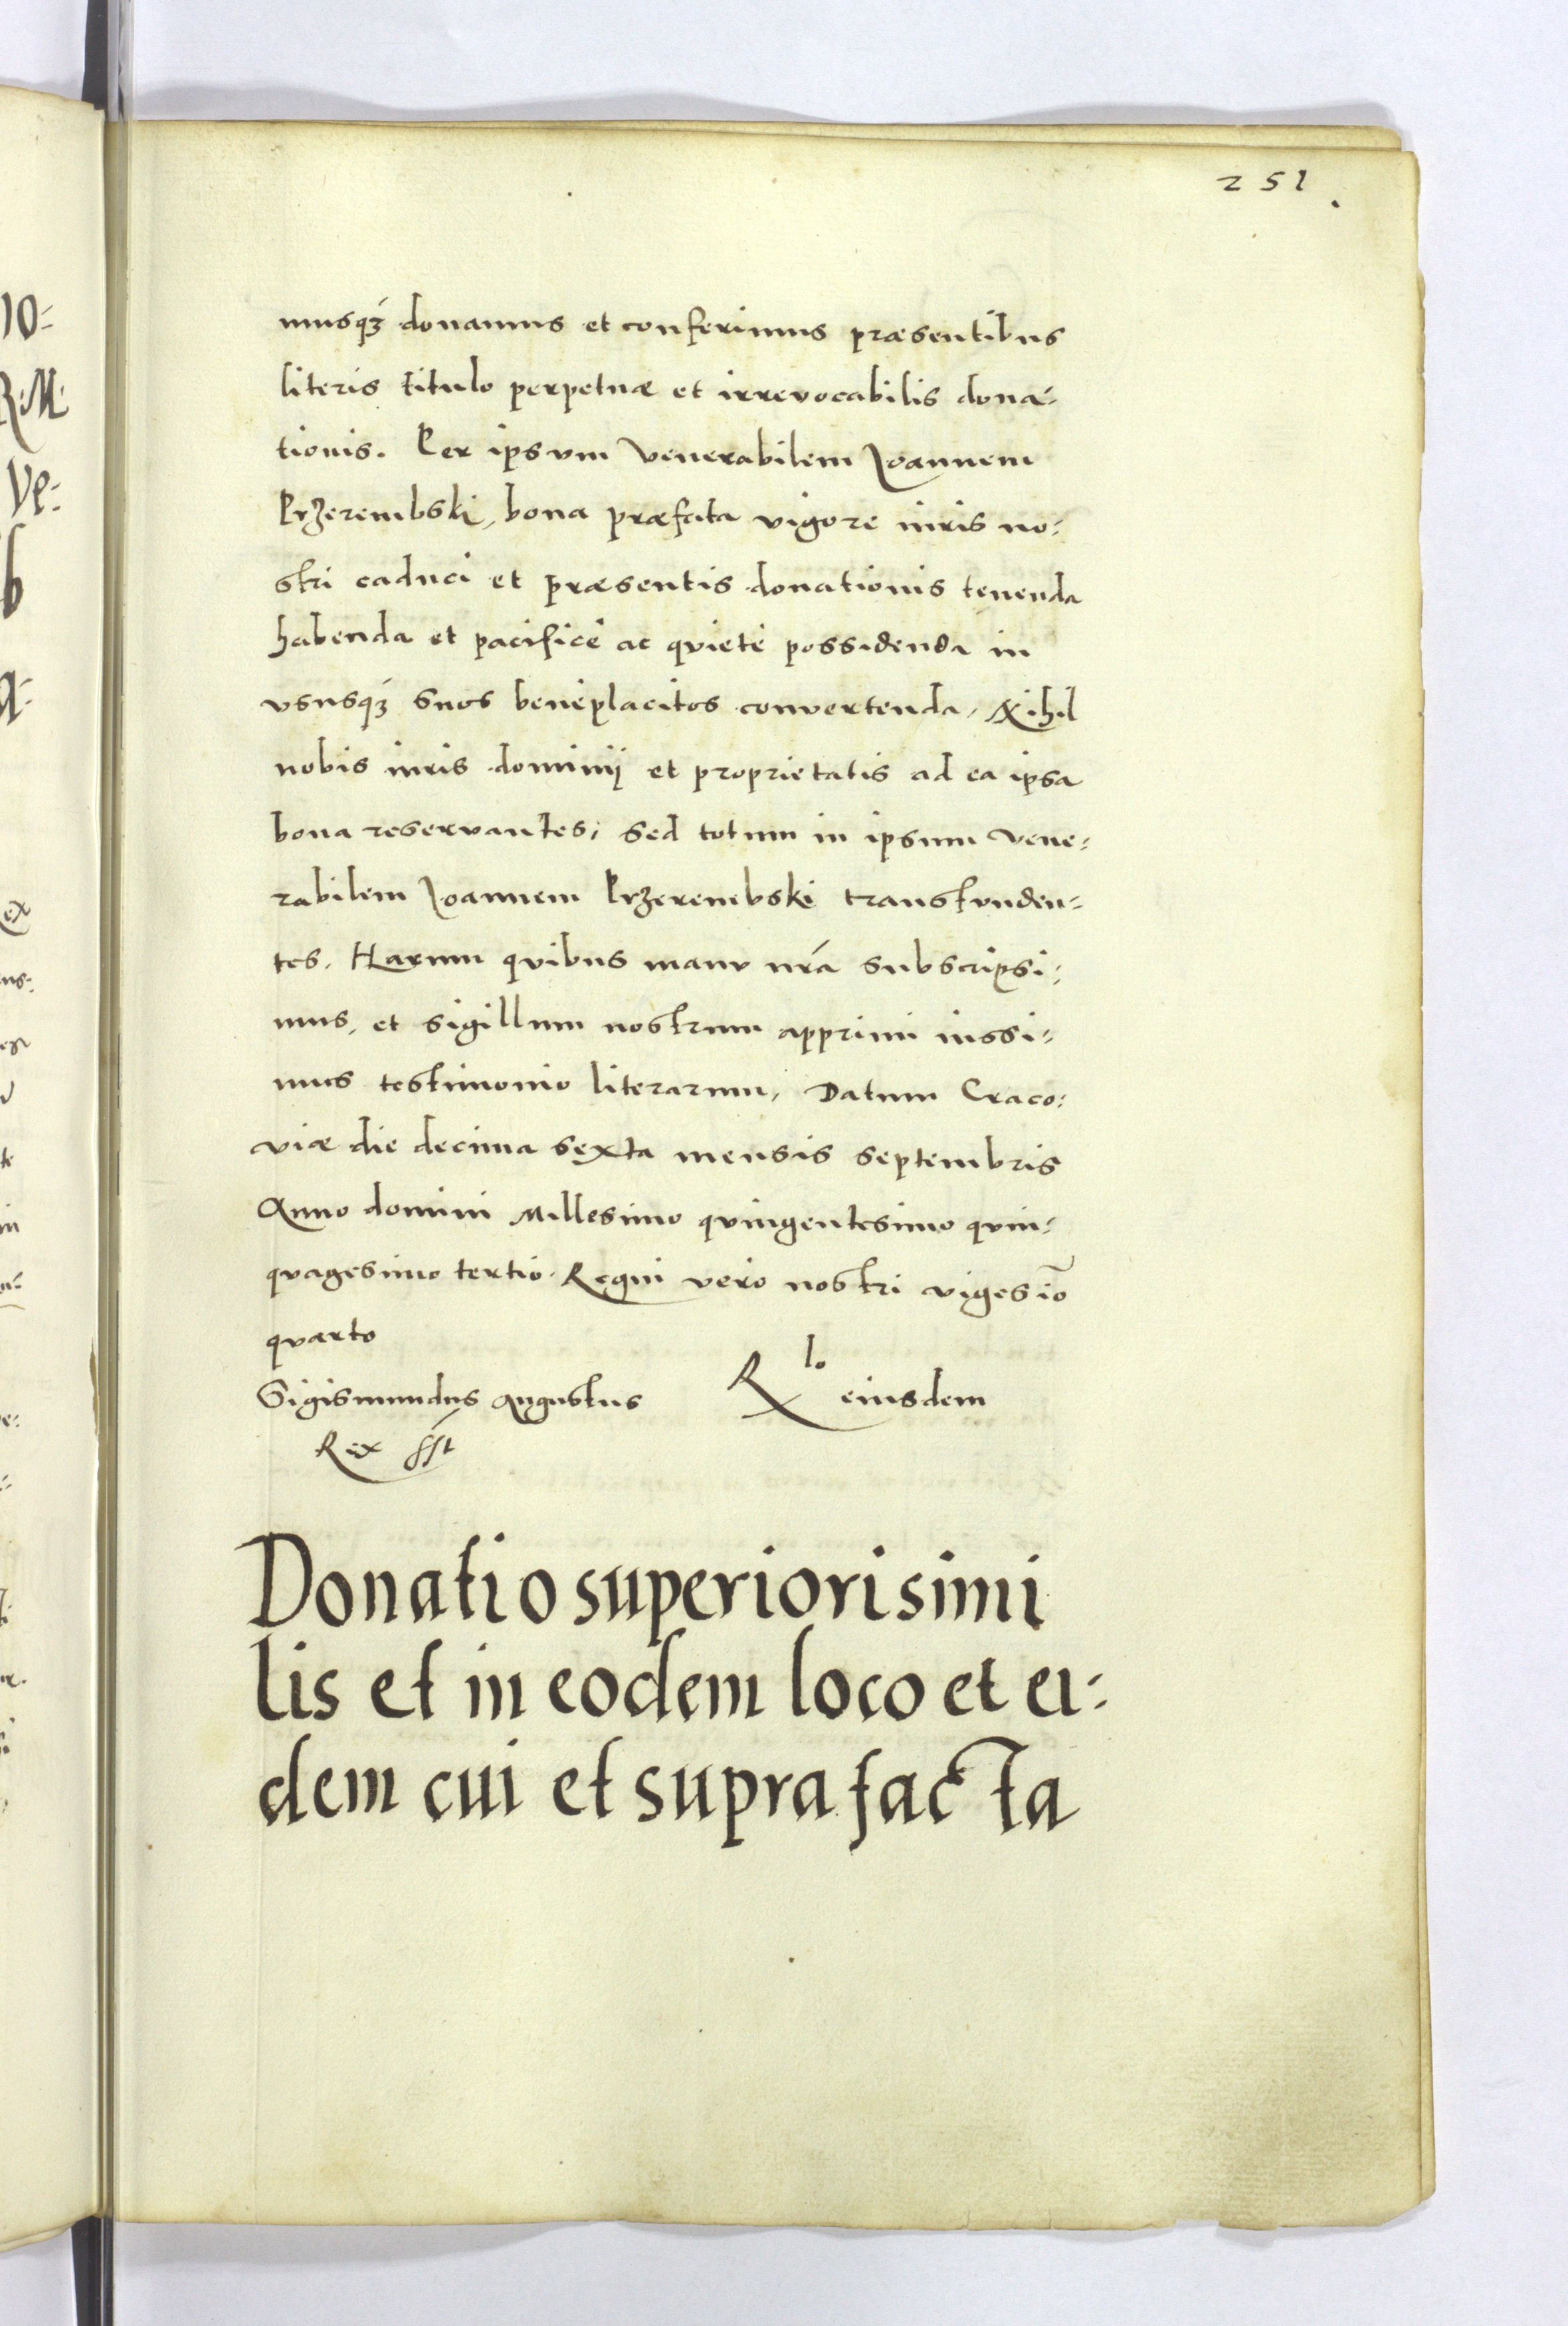 251
musq́ꝫ donamus et conferimus præsentibus
literis titulo perpetuæ et irrevocabilis dona-
tionis. Per ipsvm venerabilem Joannem
Przerembski, bona præfata vigore iuris no-
stri caduci et præsentis donationis tenenda
habenda et pacificè ac qvietè possidenda in
vsusq́ꝫ suos beneplacitos convertenda, Nihil
nobis iuris dominij et proprietatis ad ea ipsa
bona reservantes; sed totum in ipsum vene-
rabilem Joannem Przerembski transfvnden-
tes. Harum qvibus manv nr̃a subscripsi-
mus, et sigillum nostrum apprimi iussi-
mus testimonio literarum, Datum Craco-
viæ die decima sexta mensis septembris
Anno domini Millesimo qvingentesimo qvin-
qvagesimo tertio. Regni vero nostri vigesio̅
qvarto
Sigismundus Augustus R lo eiusdem
Rex sst
Donatio superiori simi
lis et in eodem loco et ei-
dem cui et supra facta